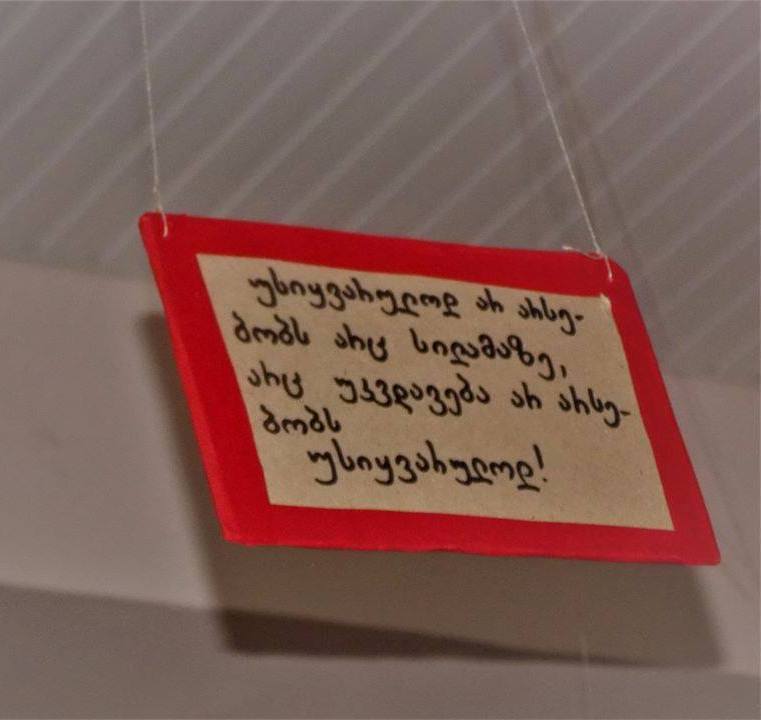 უსიყვარულოდ არ არსე-
ბობს არც სილამაზე,
არც უკვდავება არ არსე-
ბობს
უსიყვარულოდ!